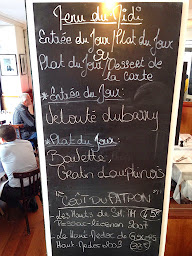 Menu du Midi
Entrée du Jour/Plat du Jour
ou
Plat du Jour/Dessert de
la Carte
*Entrée du Jour:
Velouté dubarry
*Plat du Jour:
Bavette,
Gratin dauphinois
"COUP DU PATRON"
- Les Hauts de
Pessac-Léognan
- Le Haut Medoc de
Haut Medoc 2003